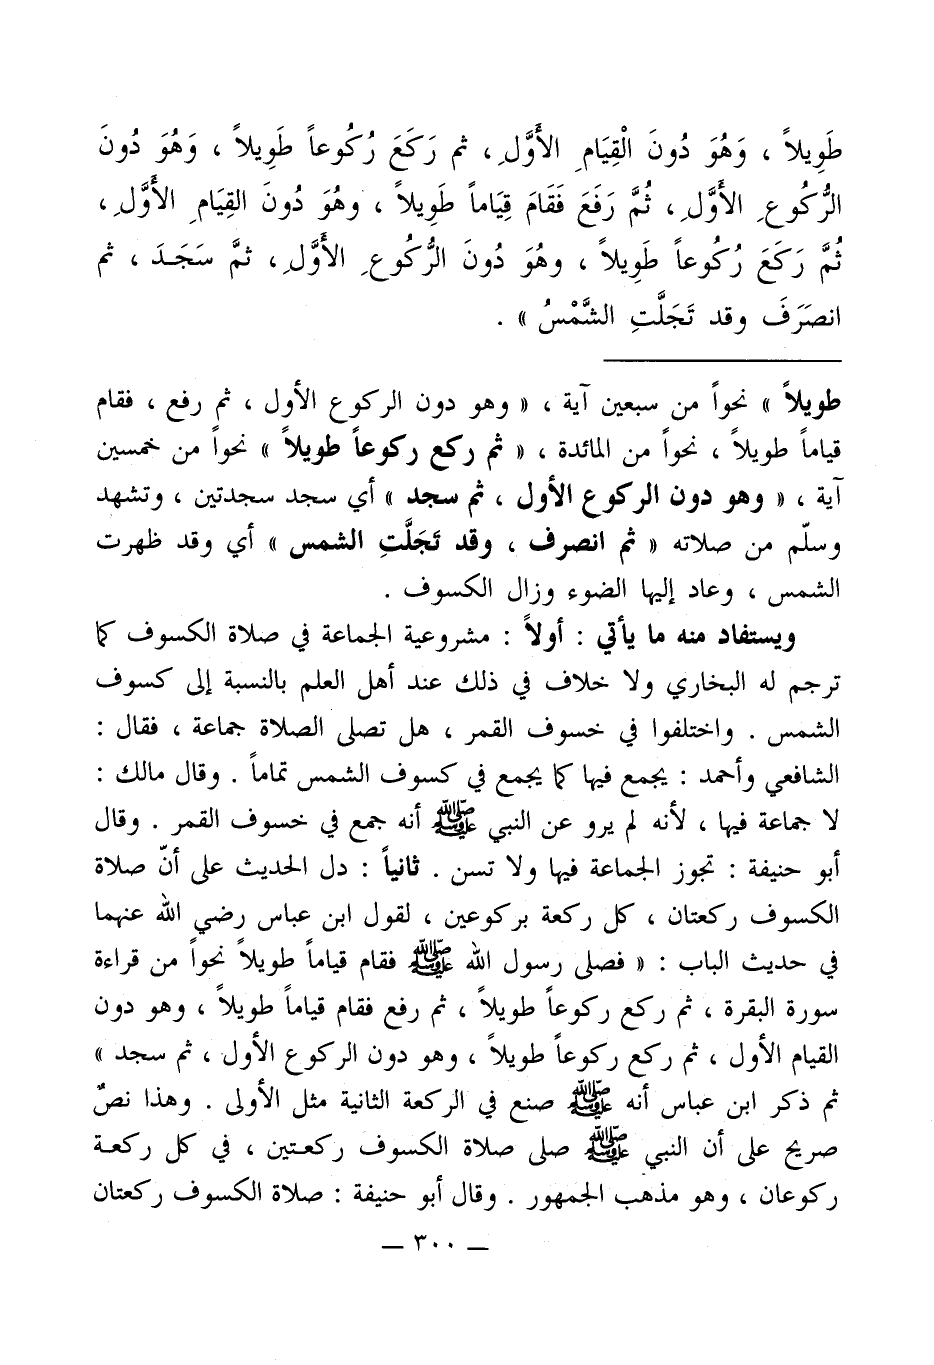 طَوِيلاً ، وَهُوَ دُونَ الْقِيَامِ الأَوَّلِ ، ثم رَكَعَ رُكُوعاً طَوِيلاً ، وَهُوَ دُونَ
الرُّكُوعِ الأَوَّلِ ، ثُمَّ رَفَعَ فَقَامَ قِيَاماً طَوِيلاً ، وهُوَ دُونَ القِيَامِ الأَوَّلِ ،
ثُمَّ رَكَعَ رُكُوعاً طَوِيلاً ، وهُوَ دُونَ الرُّكُوعِ الأَوَّلِ ، ثمَّ سَجَـدَ ، ثم
انصَرَفَ وقد تَجَلَّتِ الشَّمْسُ » .
طويلاً » نحواً من سبعين آية ، « وهو دون الركوع الأول ، ثم رفع ، فقام
قياماً طويلاً ، نحواً من المائدة ، « ثم ركع ركوعاً طويلاً » نحواً من خمسين
آية ، « وهو دون الركوع الأول ، ثم سجد » أي سجد سجدتين ، وتشهد
وسلّم من صلاته « ثم انصرف ، وقد تَجَلَّتِ الشمس » أي وقد ظهرت
الشمس ، وعاد إليها الضوء وزال الكسوف .
ويستفاد منه ما يأتي : أولاً : مشروعية الجماعة في صلاة الكسوف كما
ترجم له البخاري ولا خلاف في ذلك عند أهل العلم بالنسبة إلى كسوف
الشمس . واختلفوا في خسوف القمر ، هل تصلى الصلاة جماعة ، فقال :
الشافعي وأحمد : يجمع فيها كما يجمع في كسوف الشمس تماماً . وقال مالك :
لا جماعة فيها ، لأنه لم يرو عن النبي ﷺ أنه جمع في خسوف القمر . وقال
أبو حنيفة : تجوز الجماعة فيها ولا تسن . ثانياً : دل الحديث على أنّ صلاة
الكسوف ركعتان ، كل ركعة بركوعين ، لقول ابن عباس رضي الله عنهما
في حديث الباب : « فصلى رسول الله ﷺ فقام قياماً طويلاً نحواً من قراءة
سورة البقرة ، ثم ركع ركوعاً طويلاً ، ثم رفع فقام قياماً طويلاً ، وهو دون
القيام الأول ، ثم ركع ركوعاً طويلاً ، وهو دون الركوع الأول ، ثم سجد »
ثم ذكر ابن عباس أنه ﷺ صنع في الركعة الثانية مثل الأولى . وهذا نصٌ
صريح على أن النبي ﷺ صلى صلاة الكسوف ركعـتين ، في كل ركعـة
ركوعان ، وهو مذهب الجمهور . وقال أبو حنيفة : صلاة الكسوف ركعتان
— ٣٠٠ —